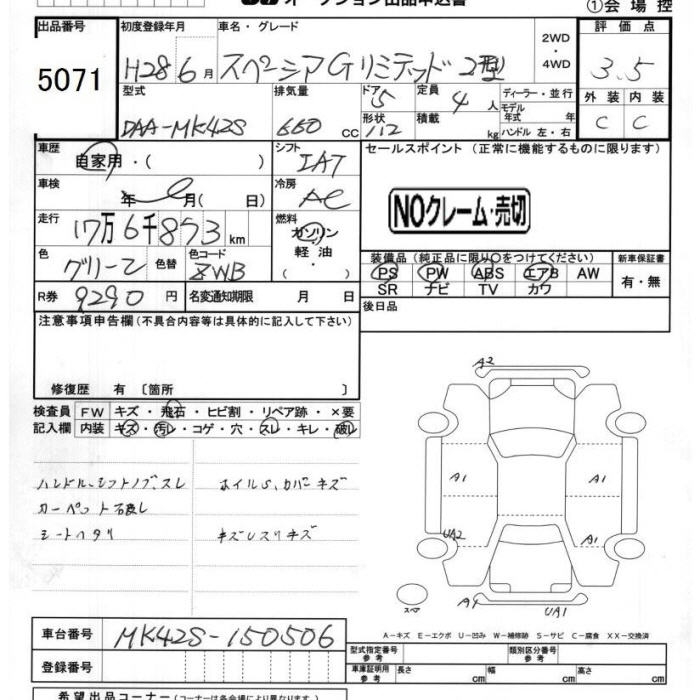 オークション出品申込書
①会場控
出品番号 初度登録年月 車名・グレード 2WD・4WD 評価点
5071 H28 6月 スペーシアGリミテッド2型 3.5
型式 排気量 ドア 5 定員 4人 ディーラー・並行 外装 内装
DAA-MK42S 660 cc 形状 112 積載 kg モデル年式 年 ハンドル 左・右 C C
車歴 自家用・( ) シフト IAT セールスポイント (正常に機能するものに限ります)
車検 年 月( 日) 冷房 AC
NOクレーム・売切
走行 17万6千853km 燃料 ガソリン 軽油 ( ・ )
色 グリーン 色替 色コード ZWB
装備品(純正品に限り○をつけてください) 新車保証書
PS PW ABS エアB AW 有・無
SR ナビ TV カワ
R券 9290円 名変通知期限 月 日
後日品
注意事項申告欄(不具合内容等は具体的に記入して下さい)
修復歴 有 〔箇所 〕
検査員 FW キズ・飛石・ヒビ割・リペア跡・×要
記入欄 内装 キズ・汚レ・コゲ・穴・スレ・キレ・破レ
ハンドル、シフトノブ、スレ ホイルS、カバーキズ
カーペット
シートヘタリ
A2
A1 A1
UA2 A1
スペア A4 UA1
A-キズ E-エクボ U-凹み W-補修跡 S-サビ C-腐食 XX-交換済
車台番号 MK42S-150506
登録番号
型式指定番号 参考 類別区分番号 参考
車庫証明用 参考 長さ cm 幅 cm 高さ cm
希望出品コーナー(コーナーは各会場により異なります)